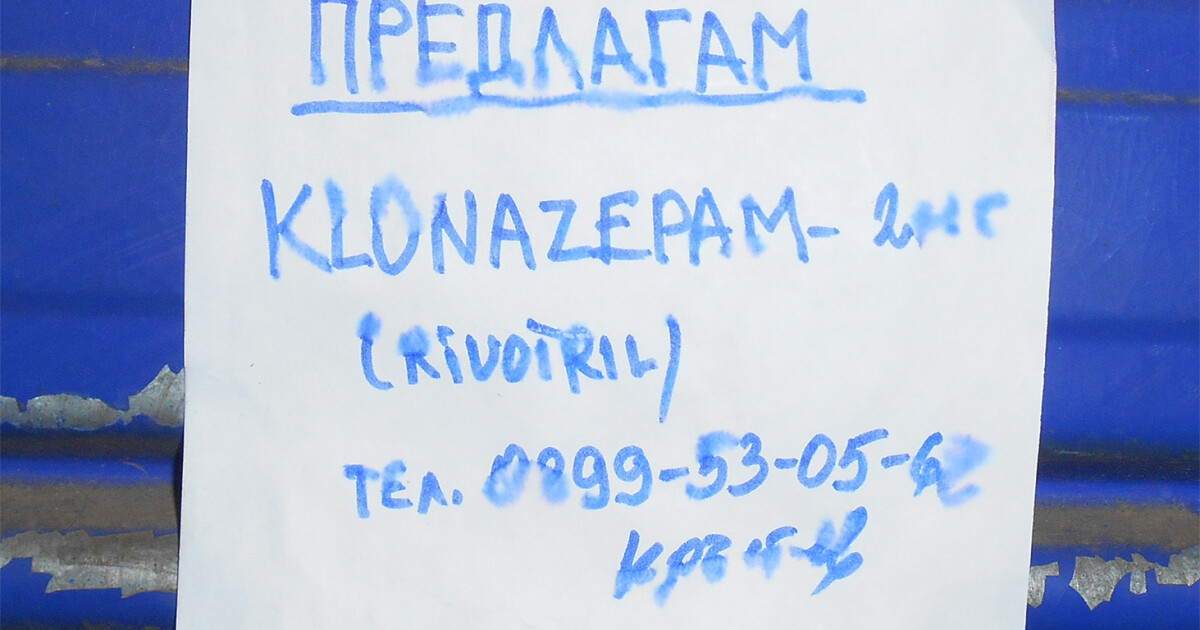 ПРЕДЛАГАМ
KLONAZEPAM- 2мг
(RIVOTRIL)
ТЕЛ. 0899-53-05-62